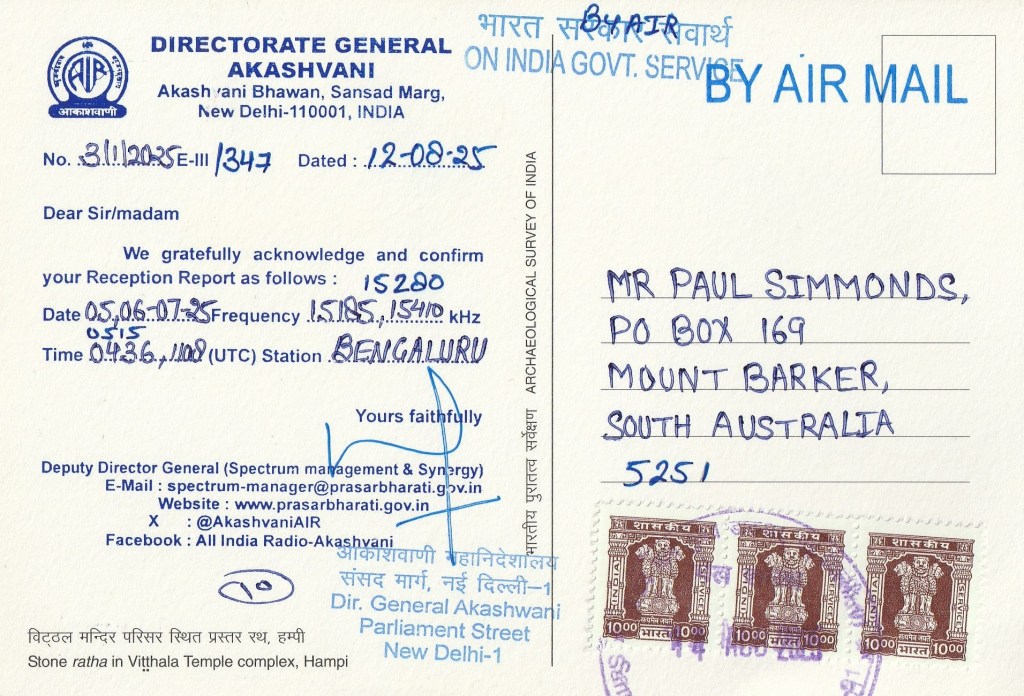 AIR
आकाशवाणी
DIRECTORATE GENERAL
AKASHVANI
Akashvani Bhawan, Sansad Marg,
New Delhi-110001, INDIA
No. 3/1/2025 E-III /347 Dated : 12-08-25
Dear Sir/madam
We gratefully acknowledge and confirm
your Reception Report as follows : 15280
Date 05,06-07-25 Frequency 15185, 15410 kHz
0515
Time 0436, 1108 (UTC) Station BENGALURU
Yours faithfully
Deputy Director General (Spectrum management & Synergy)
E-Mail : spectrum-manager@prasarbharati.gov.in
Website : www.prasarbharati.gov.in
X : @AkashvaniAIR
Facebook : All India Radio-Akashvani
आकाशवाणी महानिदेशालय
संसद मार्ग, नई दिल्ली-1
Dir. General Akashwani
Parliament Street
New Delhi-1
10
विट्ठल मन्दिर परिसर स्थित प्रस्तर रथ, हम्पी
Stone ratha in Viṭṭhala Temple complex, Hampi
भारतीय पुरातत्व सर्वेक्षण ARCHAEOLOGICAL SURVEY OF INDIA
भारत सरकार सेवार्थ
BY AIR
ON INDIA GOVT. SERVICE
BY AIR MAIL
MR PAUL SIMMONDS,
PO BOX 169
MOUNT BARKER,
SOUTH AUSTRALIA
5251
शासकीय शासकीय शासकीय
INDIA SERVICE INDIA SERVICE INDIA SERVICE
1000 भारत 1000 1000 भारत 1000 1000 भारत 1000